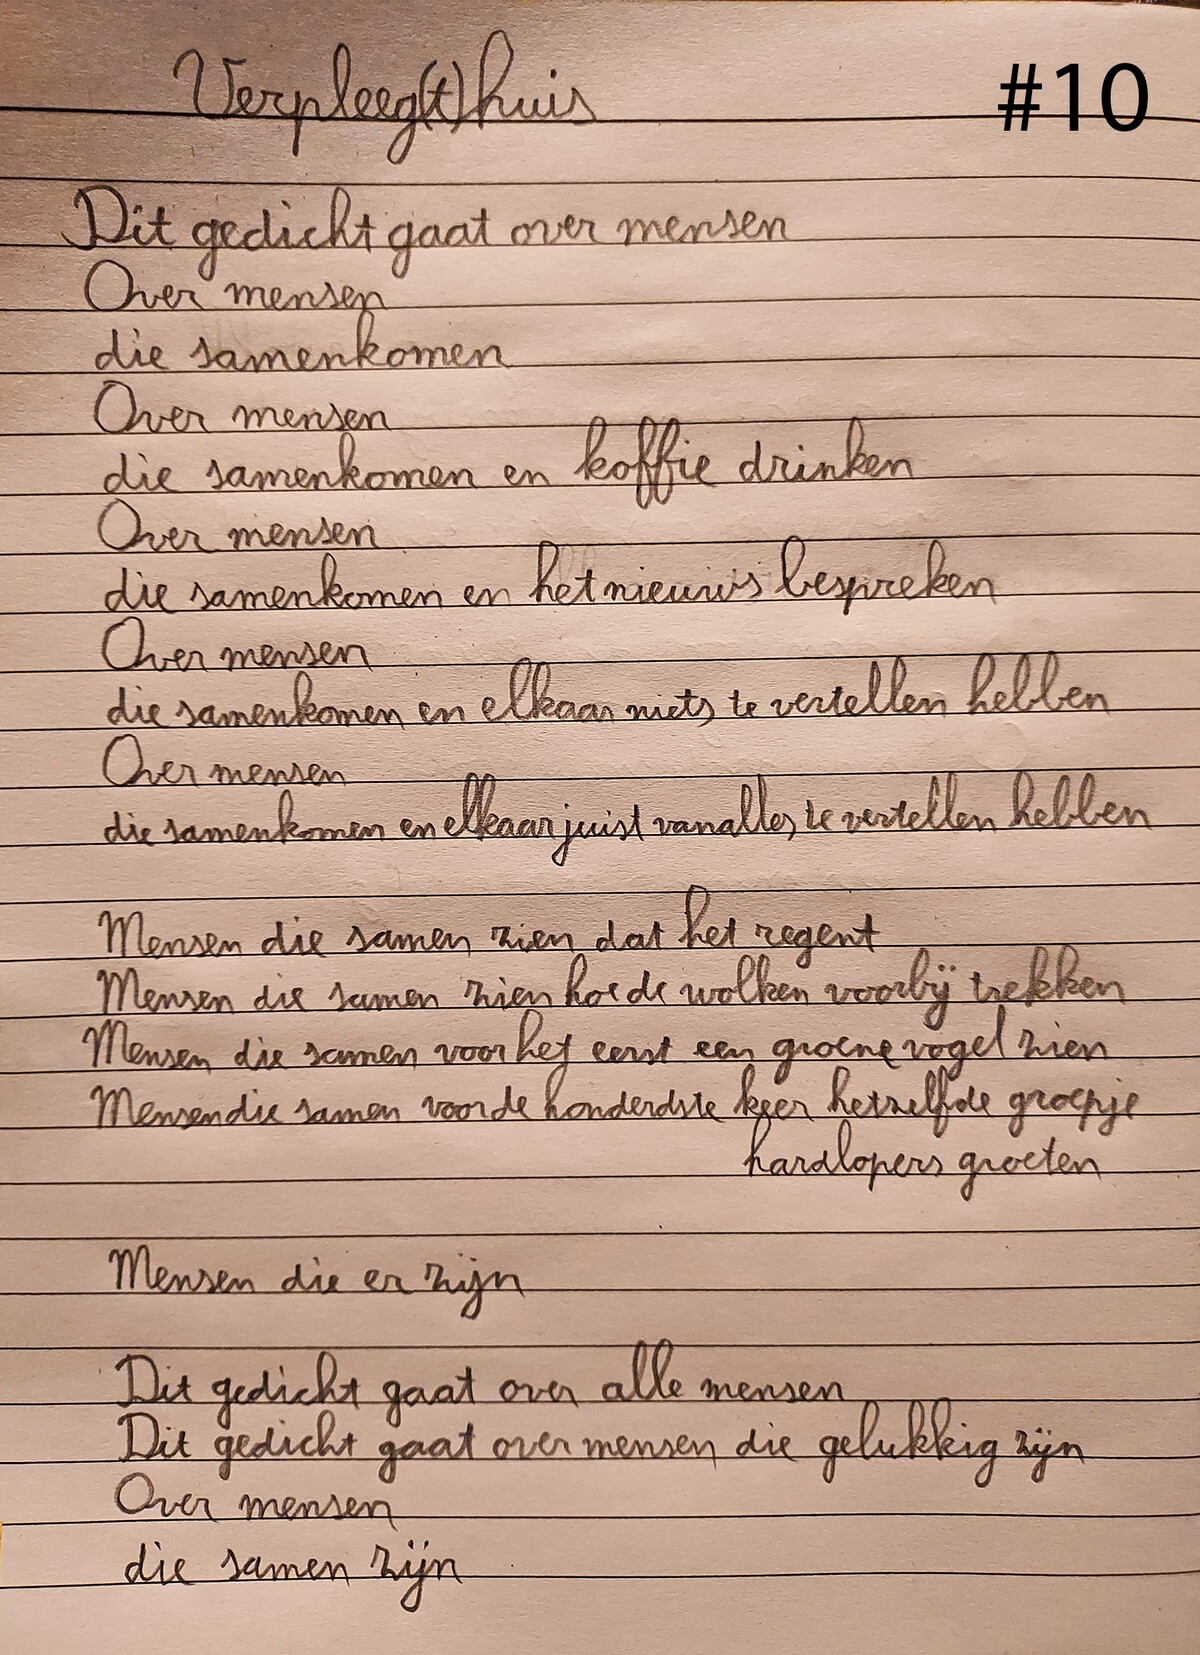 Verpleeg(t)huis
#10
Dit gedicht gaat over mensen
Over mensen
die samenkomen
Over mensen
die samenkomen en koffie drinken
Over mensen
die samenkomen en het nieuws bespreken
Over mensen
die samenkomen en elkaar niets te vertellen hebben
Over mensen
die samenkomen en elkaar juist vanalles te vertellen hebben
Mensen die samen zien dat het regent
Mensen die samen zien hoe de wolken voorbij trekken
Mensen die samen voor het eerst een groene vogel zien
Mensen die samen voor de honderdste keer hetzelfde groepje
hardlopers groeten
Mensen die er zijn
Dit gedicht gaat over alle mensen
Dit gedicht gaat over mensen die gelukkig zijn
Over mensen
die samen zijn